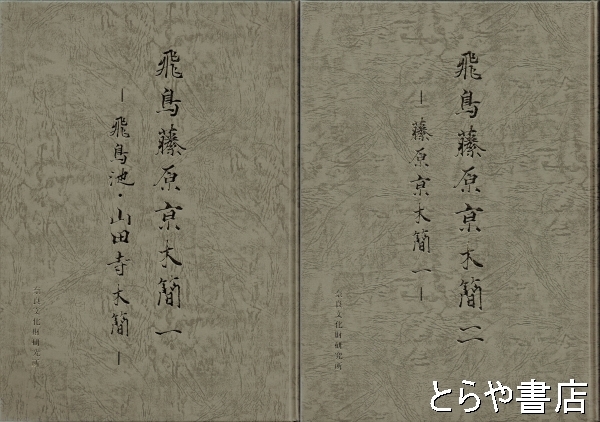 飛鳥藤原京木簡一
－飛鳥池・山田寺木簡－
奈良文化財研究所
飛鳥藤原京木簡二
－藤原京木簡一－
奈良文化財研究所
とらや書店